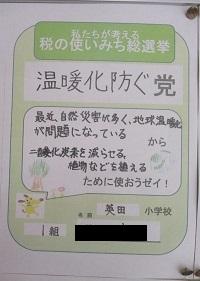 私たちが考える
税の使いみち総選挙
温暖化防ぐ党
最近、自然災害が多く、地球温暖化
が問題になっている
から
二酸化炭素を減らせる、
植物などを植える
ために使おうゼイ！
名前 英田 小学校
1組